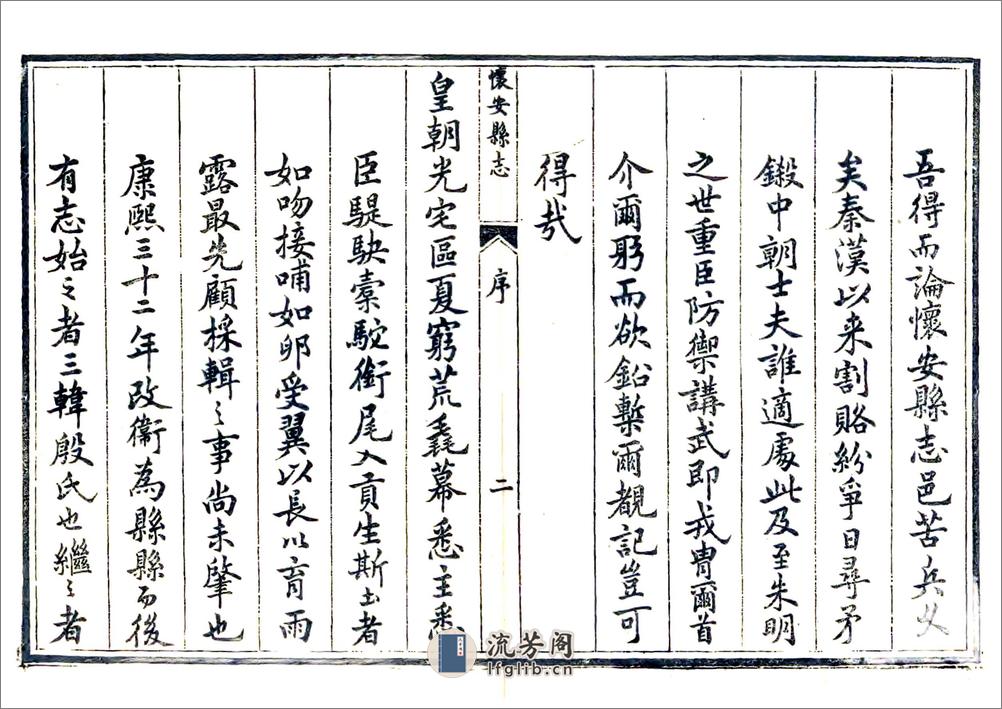 吾得而論懷安縣志邑苦兵久
矣秦漢以来割賂紛爭日尋矛
鍛中朝士夫誰適處此及至朱明
之世重臣防禦講武即戎冑爾首
介爾躬而欲鉛槧爾覩記豈可
得哉
懷安縣志
序
二
皇朝光宅區夏窮荒毳幕悉主悉
臣騠駃橐駝銜尾入貢生斯土者
如吻接哺如卵受翼以長以育雨
露最先顧採輯之事尚未肇也
康熙三十二年改衞為縣縣而後
有志始之者三韓殷氏也繼之者
流芳阁
lfglib.cn